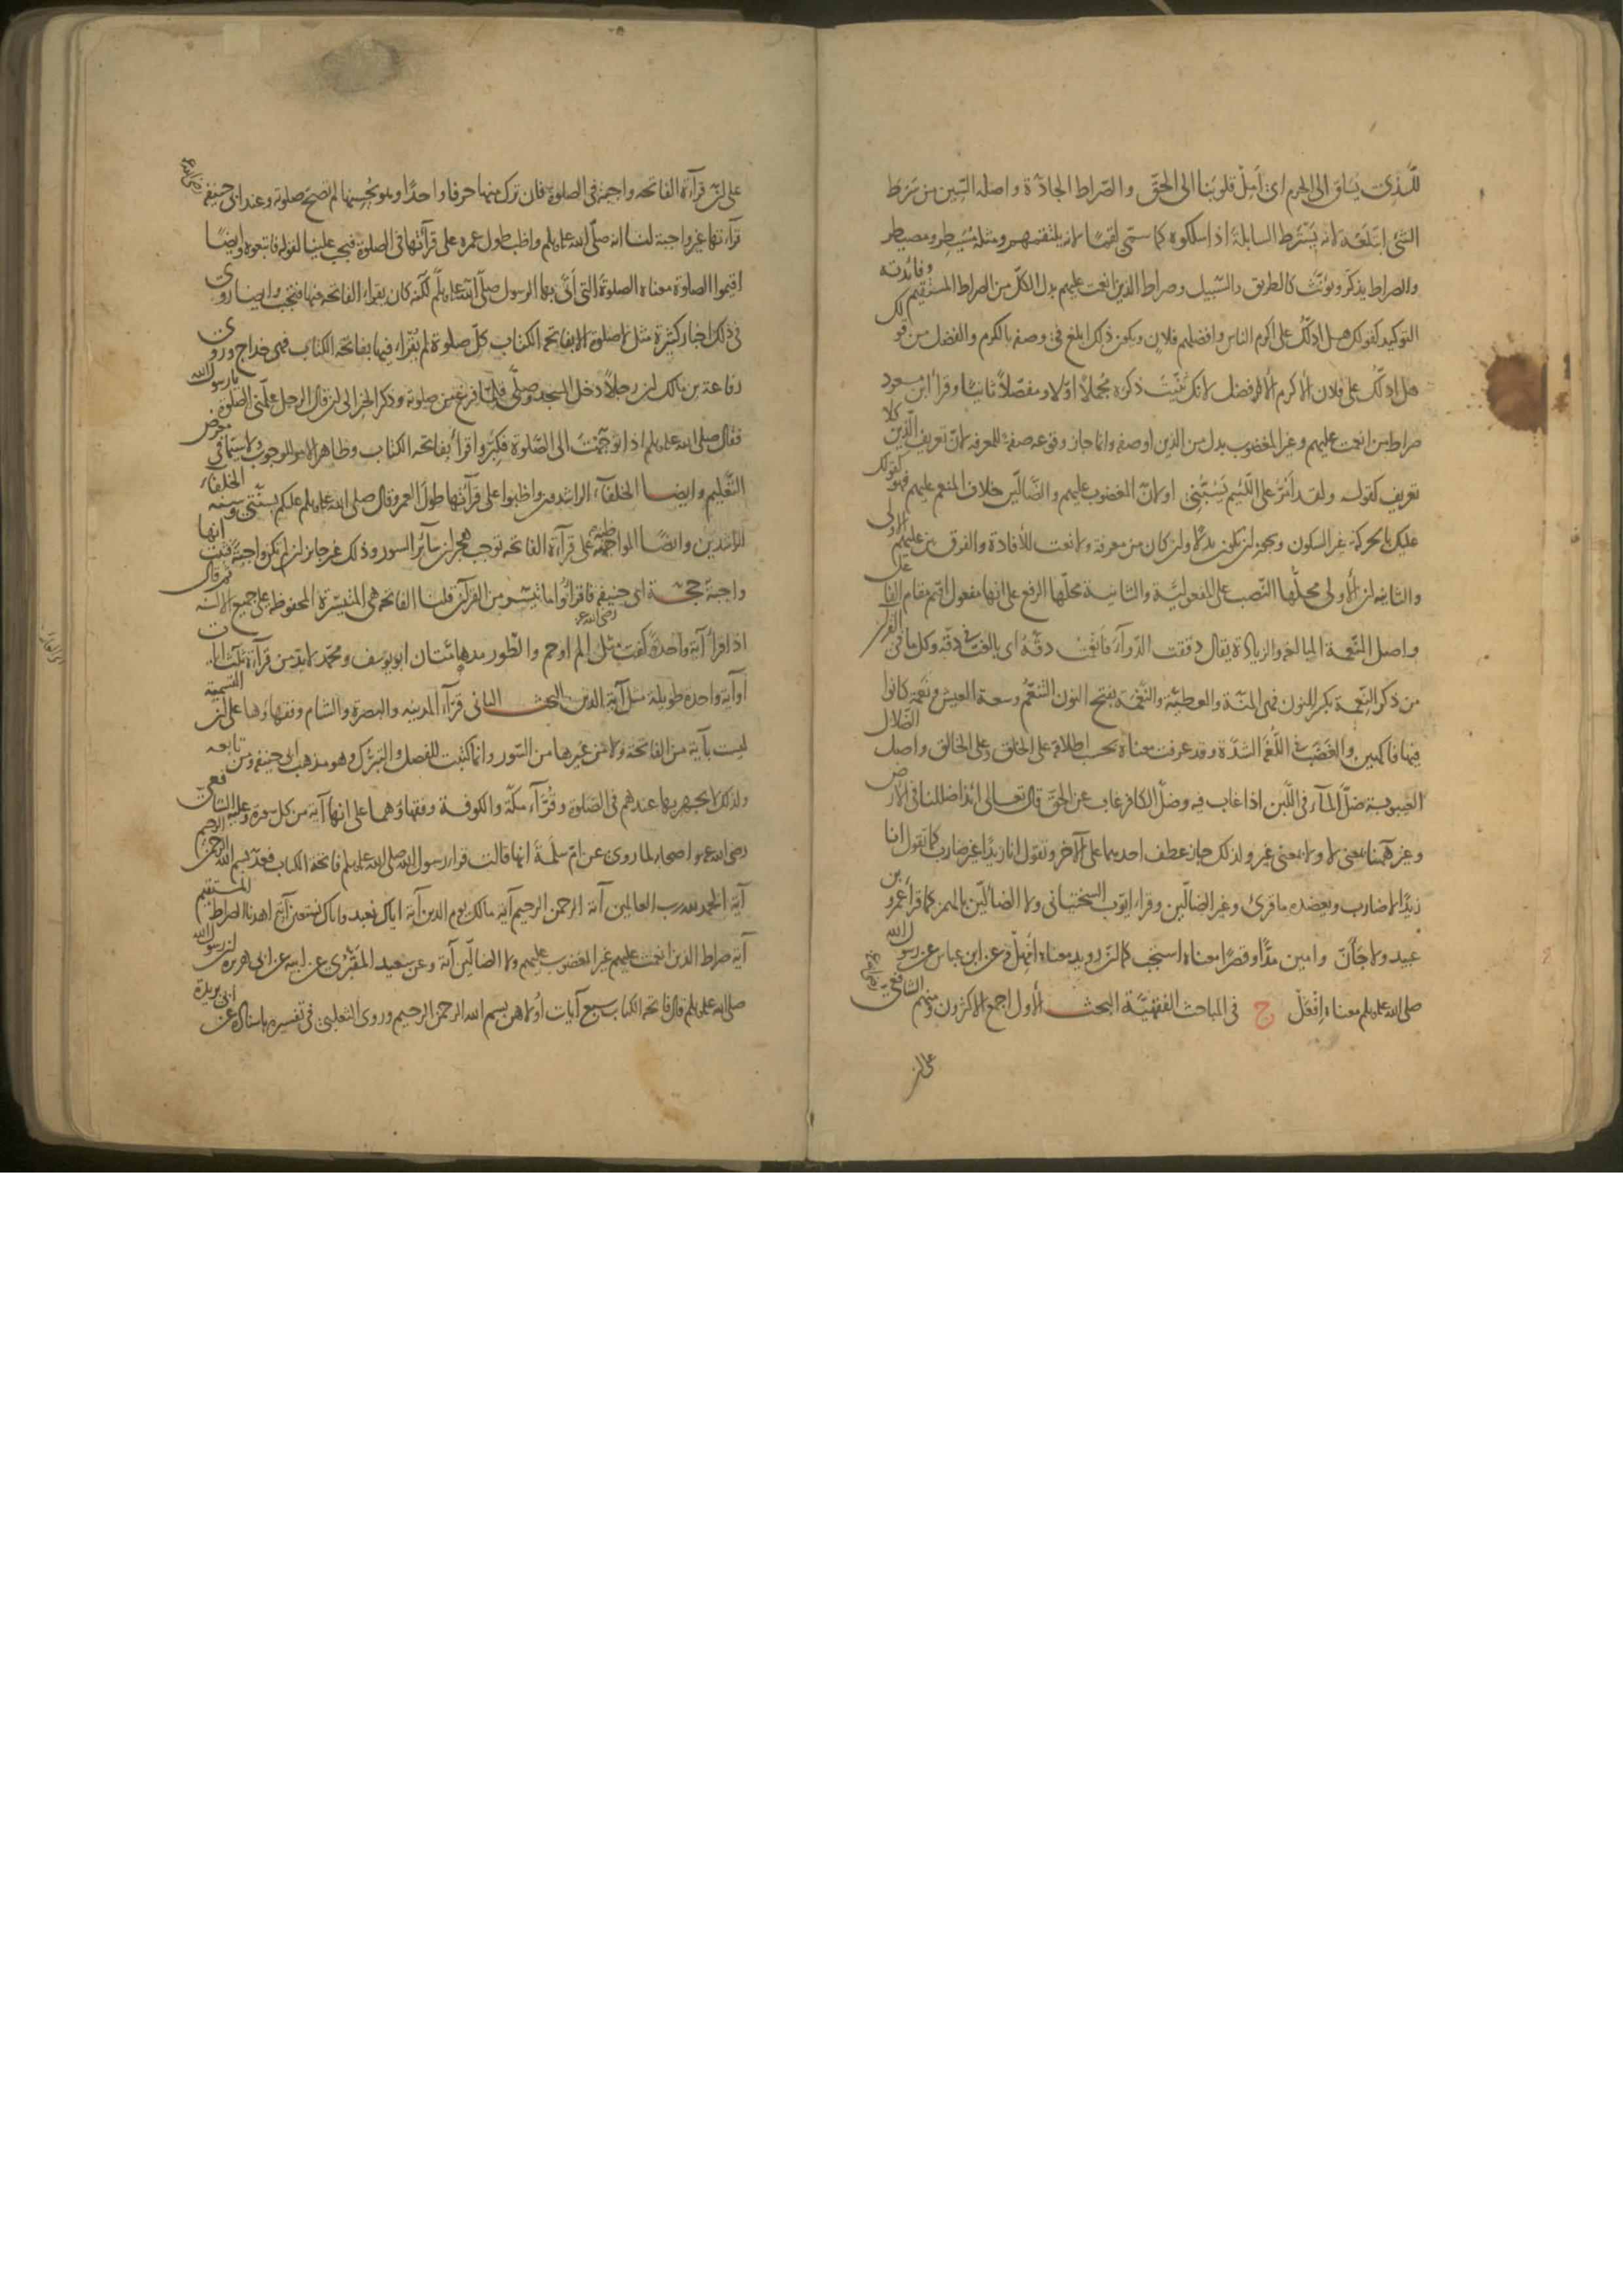 للذى يساق الى الحرم اى أمل قلوبنا الى الحق والصراط الجادة واصله السين من سرط
الشئ ابتلعه لانه يسترط السابلة اذا سلكوه كما سمى لقما لانه يلتقمهم ومثله مسيطر ومصيطر
والصراط يذكر ويونث كالطريق والسبيل وصراط الذين انعمت عليهم بدل الكل من الصراط المستقيم وفائدته
التوكيد كقولك هل ادلك على اكرم الناس وافضلهم فلان ويكون ذلك ابلغ فى وصفه بالكرم والفضل من قولك
هل ادلك على فلان الاكرم الافضل لانك ثنيت ذكره مجملا اولا ومفصلا ثانيا وقرأ ابن مسعود
صراط من انعمت عليهم وغير المغضوب بدل من الذين او صفه وانما جاز وقوعه صفة للمعرفه لان تعريف الذين كلا
تعريف كقوله ولقد أمر على اللئيم يسبنى او لان المغضوب عليهم والضالين خلاف المنعم عليهم فهو كقولك
عليك بالحركة غير السكون ويجوز ان يكون بدلا وان كان من معرفة ولا نعت للأفادة والفرق بين عليهم الاولى
والثانيه ان الأولى محلها النصب على المفعولية والثانية محلها الرفع على انها مفعول اقيم مقام الفاعل
واصل النعمة المبالغه والزيادة يقال دققت الدوآء فانعمت دقه اى بالغت فى دقه وكل ما فى القران
من ذكر النعمة بكسر النون فهى المنة والعطية والنعمة بفتح النون التنعم وسعة العيش ونعمة كانوا
فيها فاكهين والغضب فى اللغة الشدة وقد عرفت معناه بحسب اطلاقه على الخلق وعلى الخالق واصل الضلال
الغيبوبة ضل المآء فى اللبن اذا غاب فيه وضل الكافر غاب عن الحق قال تعالى ائذا ضللنا فى الارض
وغير ههنا بمعنى لا ولا بمعنى غير ولذلك جاز عطف احديهما على الآخر وتقول انا زيدا غير ضارب كما تقول انا
زيدا لا ضارب ويعضده ما قرئ وغير الضالين وقراء ايوب السختيانى ولا الضألين بالهمز كما قرأ عمرو بن
عبيد ولا جأن وامين مدا وقصرا معناه استجب كما ان رويد معناه أمهل وعن ابن عباس عن رسول الله
صلى الله عليه وسلم معناه إفعل ج فى المباحث الفقهية البحث الأول اجمع الاكثرون ومنهم الشافعى رضى الله عنه
على ان
على ان قرآءة الفاتحه واجبة فى الصلوة فان ترك منها حرفا واحدا وهو يحسنها لم تصح صلوته وعند ابى حنيفه رضى الله عنه
قرآءتها غير واجبة لنا انه صلى الله عليه وسلم واظب طول عمره على قرآئتها فى الصلوة فيجب علينا لقوله فاتبعوه وايضا
اقيموا الصلوة معناه الصلوة التى أتى بها الرسول صلى الله عليه وسلم لكنه كان يقراء الفاتحه فيها فتجب وايضا روى
فى ذلك اخبار كثيرة مثل لا صلوة الا بفاتحة الكتاب كل صلوة لم يقراء فيها بفاتحة الكتاب فهى خداج وروى
رفاعة بن مالك ان رجلا دخل المسجد وصلى فلما فرغ من صلوته وذكر الخبر الى ان قال الرجل علمنى الصلوة يا رسول الله
فقال صلى الله عليه وسلم اذا توجهت الى الصلوة فكبر واقرأ بفاتحه الكتاب وظاهر الامر للوجوب ولا سيما فى معرض
التعليم وايضا الخلفآء الراشدون واظبوا على قرآئتها طول العمر وقال صلى الله عليه وسلم عليكم بسنتى وسنة الخلفآء
الراشدين وايضا المواظبة على قرآءة الفاتحه توجب هجران سآئر السور وذلك غير جايز ان لم تكن واجبة فثبت انها
واجبة حجة ابى حنيفه رضى الله عنه فاقرأوا ما تيسر من القرآن قلنا الفاتحه هى المتيسرة المحفوظه على جميع الالسنة ثم قال
اذا قرأ آية واحدة كفت مثل الم او حم والطور ومدهامتان ابو يوسف ومحمد لا بد من قرآءة ثلث ايات
او آية واحدة طويلة مثل آية الدين البحث الثانى قرآء المدينه والبصرة والشام وفقهاؤها على ان التسمية
ليست بآية من الفاتحة ولا من غيرها من السور وانما كتبت للفصل والتبرك وهو مذهب ابى حنيفه ومن تابعه
ولذلك لا يجهر بها عندهم فى الصلوة وقرآء مكة والكوفة وفقهاؤهما على انها آية من كل سورة وعليه الشافعى
رضى الله عنه واصحابه لما روى عن ام سلمة انها قالت قراء رسول الله صلى الله عليه وسلم فاتحة الكتاب فعد بسم الله الرحمن الرحيم
آية الحمد لله رب العالمين آية الرحمن الرحيم آية مالك يوم الدين آية اياك نعبد واياك نستعين آية اهدنا الصراط المستقيم
آية صراط الذين انعمت عليهم غير المغضوب عليهم ولا الضالين آية وعن سعيد المقبرى عن ابيه عن ابى هريره ان رسول الله
صلى الله عليه وسلم قال فاتحة الكتاب سبع آيات أولاهن بسم الله الرحمن الرحيم وروى الثعلبى فى تفسيره باسناده عن أبى بريدة